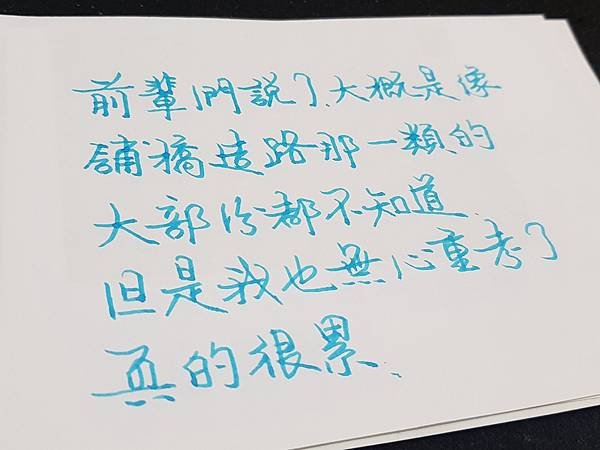 前輩們說了、大概是像
舖橋造路那一類的
大部份都不知道
但是我也無心重考了
真的很累、